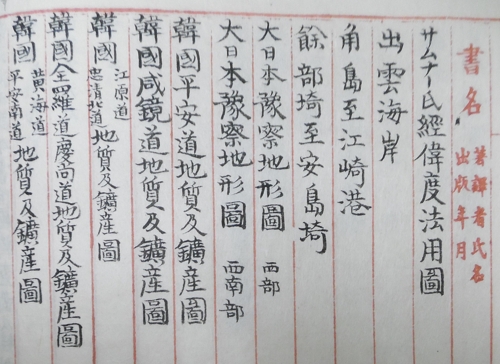 書名
著譯者氏名
出版年月
サムナー氏經偉度法用圖
出雲海岸
角島至江崎港
餘部埼至安島埼
大日本豫察地形圖 西部
大日本豫察地形圖 西南部
韓國平安道地質及鑛産圖
韓國咸鏡道地質及鑛産圖
韓國江原道忠清北道地質及鑛産圖
韓國全羅道慶尚道地質及鑛産圖
韓國黃海道平安南道地質及鑛産圖